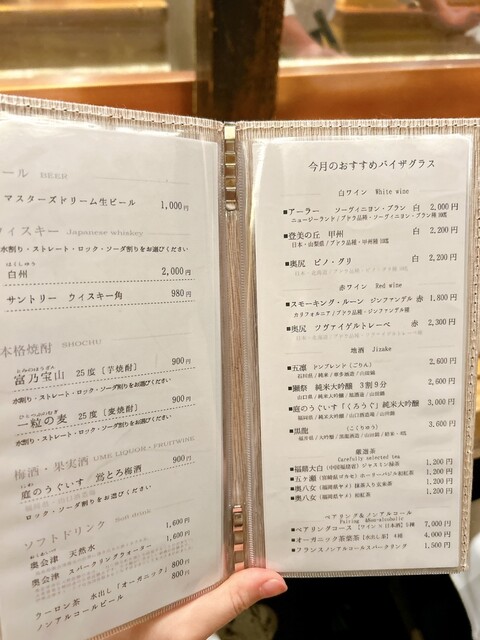 ール BEER
マスターズドリーム生ビール 1,000円
ウィスキー Japanese whiskey
水割り・ストレート・ロック・ソーダ割りをお選びください
はくしゅう
白州 2,000円
サントリー ウィスキー角 980円
本格焼酎 SHOCHU
富乃宝山 25度【芋焼酎】 900円
水割り・ストレート・ロック・ソーダ割りをお選びください
一粒の麦 25度【麦焼酎】 900円
水割り・ストレート・ロック・ソーダ割りをお選びください
梅酒・果実酒 UME LIQUOR・FRUITWINE
庭のうぐいす/鶯とろ梅酒 900円
ロック・ソーダ割りをお選びください
ソフトドリンク Soft drink
奥会津 天然水 1,600円
奥会津 スパークリングウォーター 1,600円
ウーロン茶 水出し「オーガニック」 800円
ノンアルコールビール 800円
今月のおすすめバイザグラス
白ワイン White wine
■アーラー ソーヴィニヨン・ブラン 白 2,000円
ニュージーランド/ブドウ品種・ソーヴィニヨン・ブラン種
■登美の丘 甲州 白 2,200円
日本・山梨県/ブドウ品種・甲州種
■奥尻 ピノ・グリ 白 2,200円
赤ワイン Red wine
■スモーキング・ルーン ジンファンデル 赤 1,800円
カリフォルニア/ブドウ品種・ジンファンデル種
■奥尻 ツヴァイゲルトレーベ 赤 2,300円
地酒 Jizake
■五凛 ドンブレンド(ごりん) 2,600円
石川県/純米/車多酒造/山田錦
■獺祭 純米大吟醸 3割9分 2,600円
山口県/純米大吟醸/旭酒造/山田錦
■庭のうぐいす「くろうぐ」純米大吟醸 3,000円
福岡県/純米大吟醸/山口酒造場/山田錦
■黒龍 (こくりゅう) 3,600円
福井県/大吟醸/黒龍酒造/山田錦
厳選茶
Carefully selected tea
■福鼎大白(中国福建省)ジャスミン抹茶 1,200円
■五ヶ瀬(宮崎県 1,200円
■奥八女(福岡県 抹茶入り玄米茶 1,200円
■奥八女(福岡県 和紅茶 1,200円
ペアリング&ノンアルコール
Pairing &Non-alcoholic
■ペアリングコース【ワイン×日本酒】5種 7,000円
■オーガニック茶葉茶【水出し茶】 4種 4,000円
■フランスノンアルコールスパークリング 1,500円